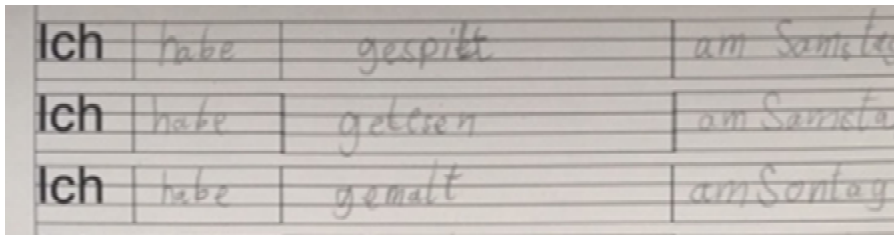 Ich habe gespilt am Samstag
Ich habe gelesen am Samsta
Ich habe gemalt am Sontag